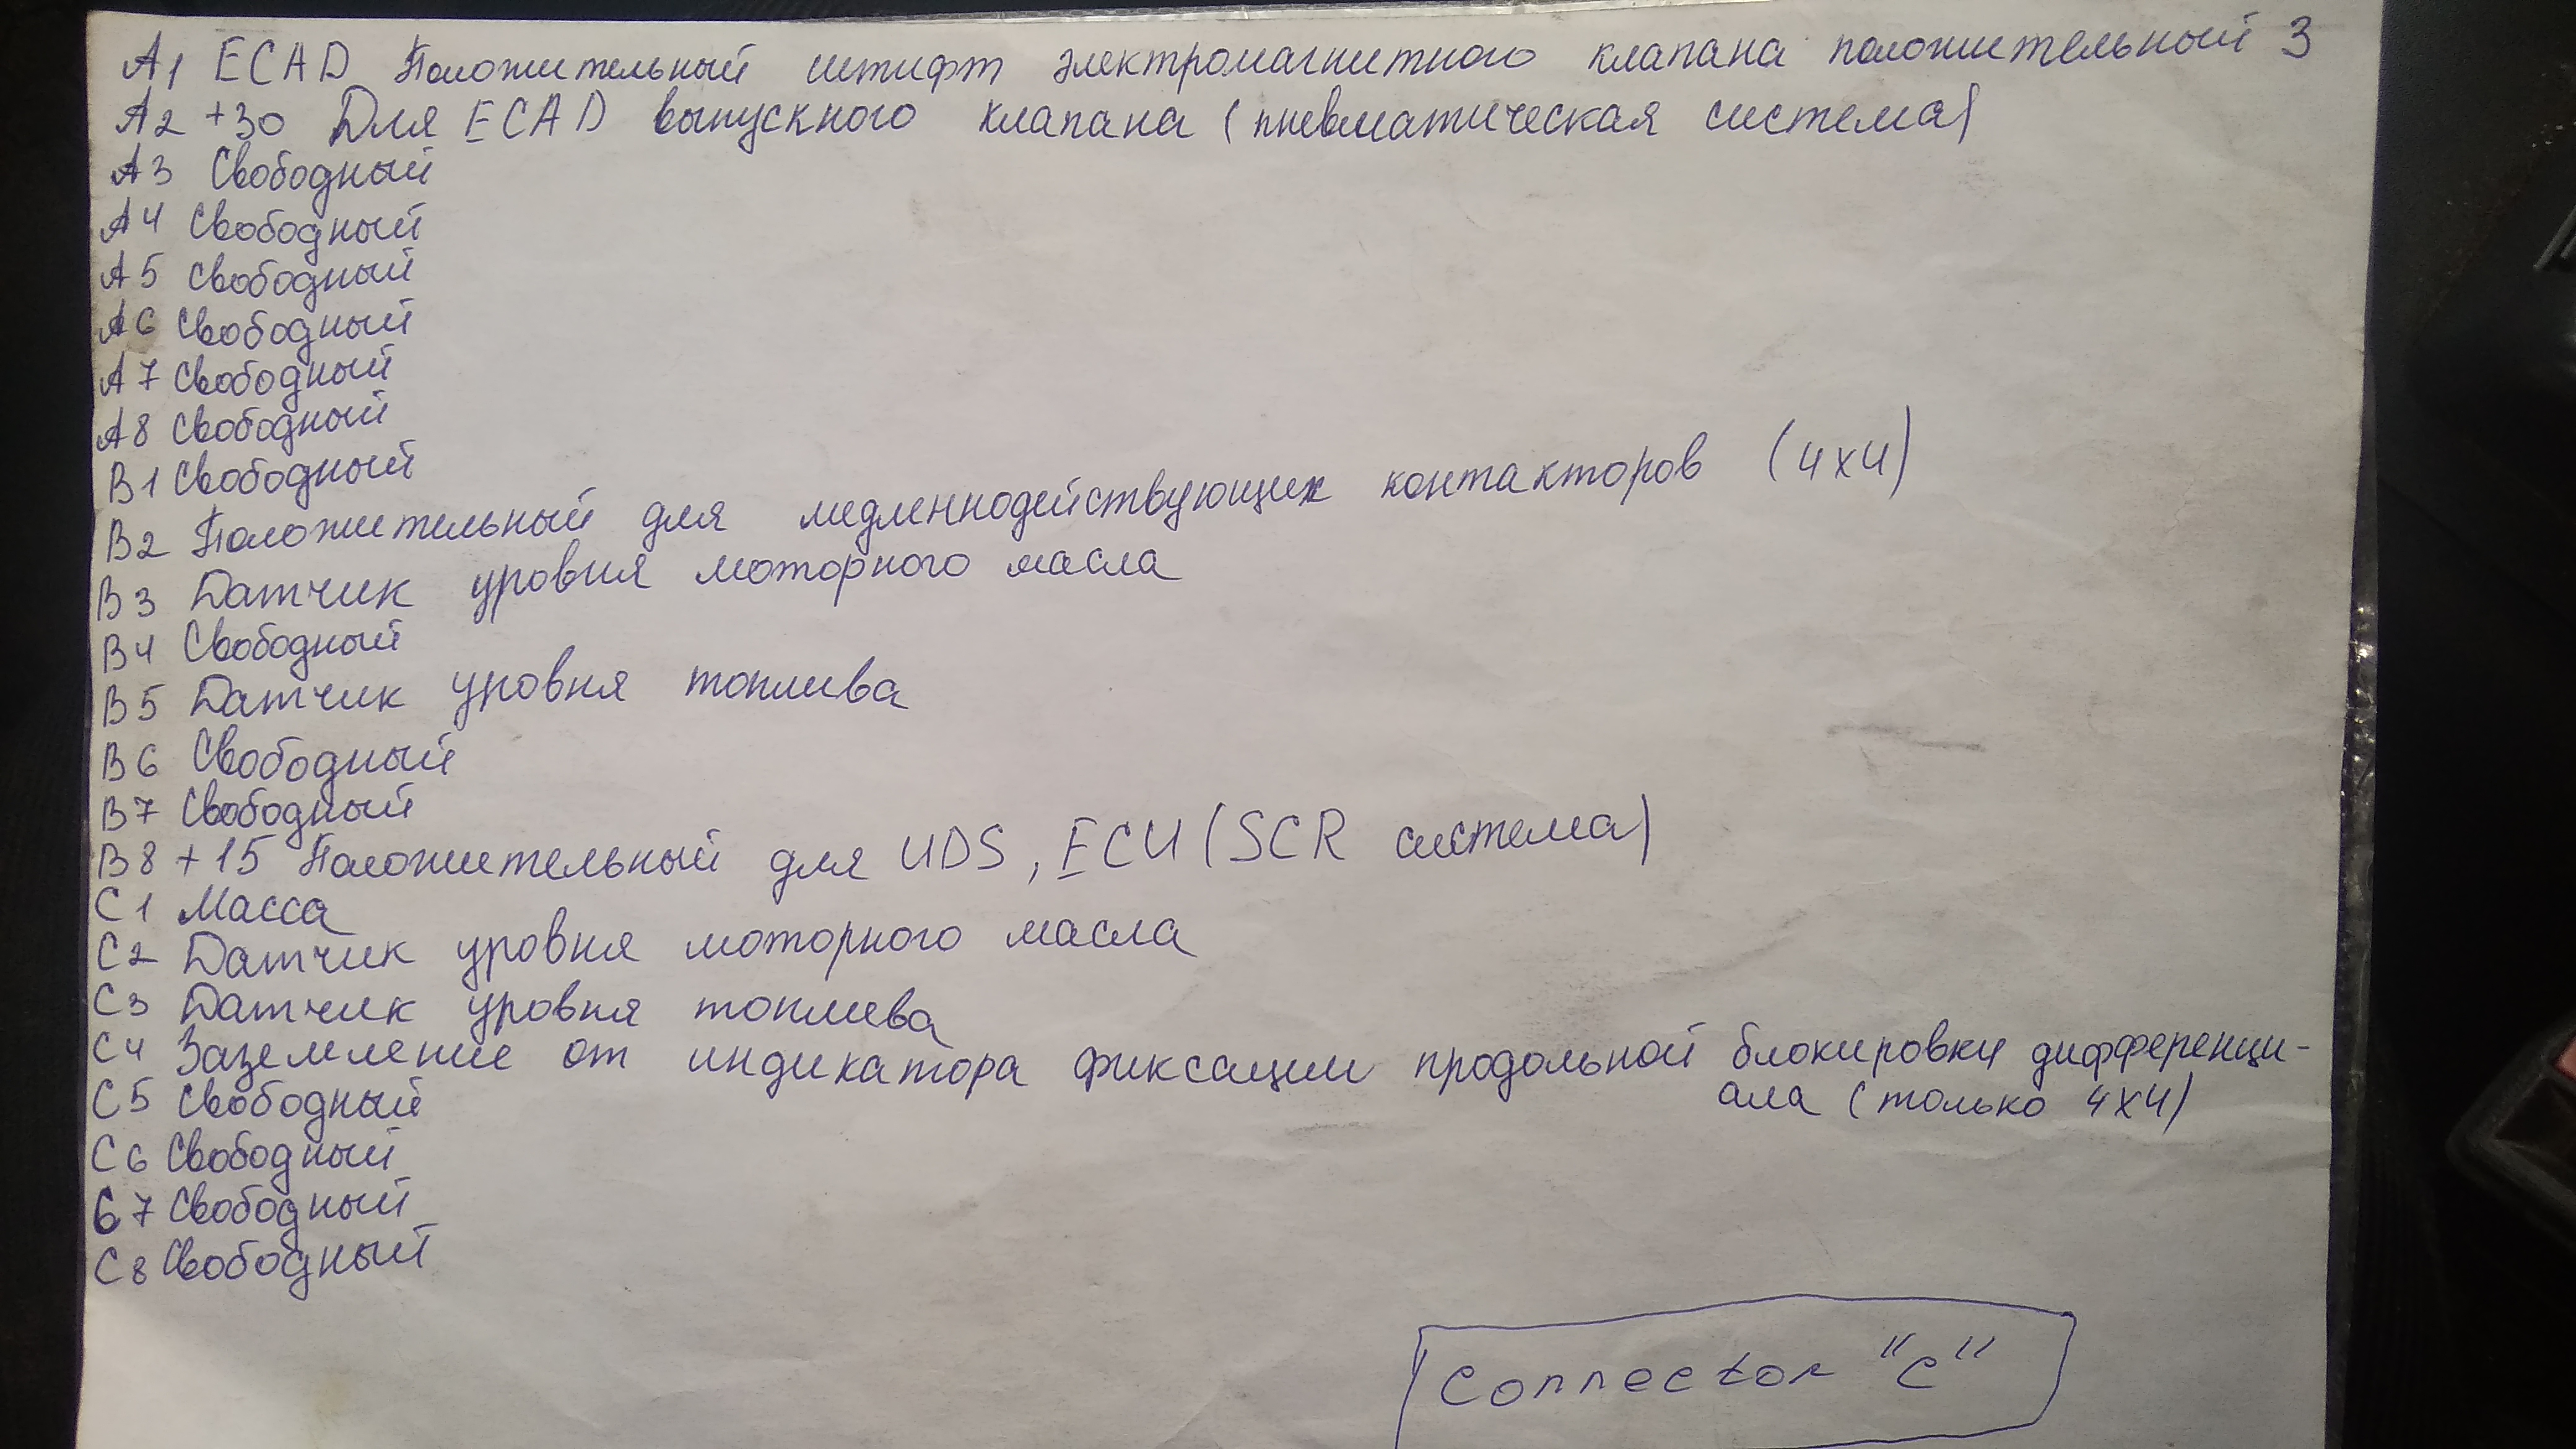 A1 ECAD Положительный штифт электромагнитного клапана положительный 3
A2 +30 Для ECAD выпускного клапана (пневматическая система)
A3 Свободный
A4 Свободный
A5 Свободный
A6 Свободный
A7 Свободный
A8 Свободный
B1 Свободный
B2 Положительный для медленнодействующих контакторов (4х4)
B3 Датчик уровня моторного масла
B4 Свободный
B5 Датчик уровня топлива
B6 Свободный
B7 Свободный
B8 +15 Положительный для UDS, ECU (SCR система)
C1 Масса
C2 Датчик уровня моторного масла
C3 Датчик уровня топлива
C4 Заземление от индикатора фиксации продольной блокировки дифференци-
ала (только 4х4)
C5 Свободный
C6 Свободный
C7 Свободный
C8 Свободный
Connector "C"